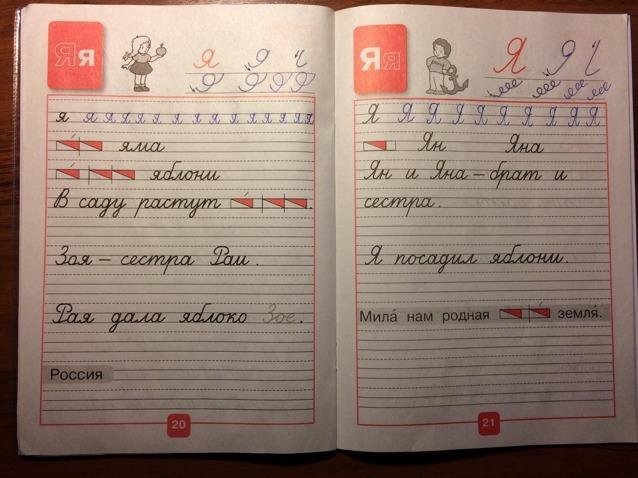 Я я
Я Я
я я я я я я я я я я я я я я
яма
яблони
В саду растут .
Зоя – сестра Раи.
Рая дала яблоко Зое.
Россия
20
Я я
Я Я
Я Я Я Я Я Я Я Я Я
Ян Яна
Ян и Яна – брат и
сестра.
Я посадил яблони.
Мила́ нам родная земля́.
21